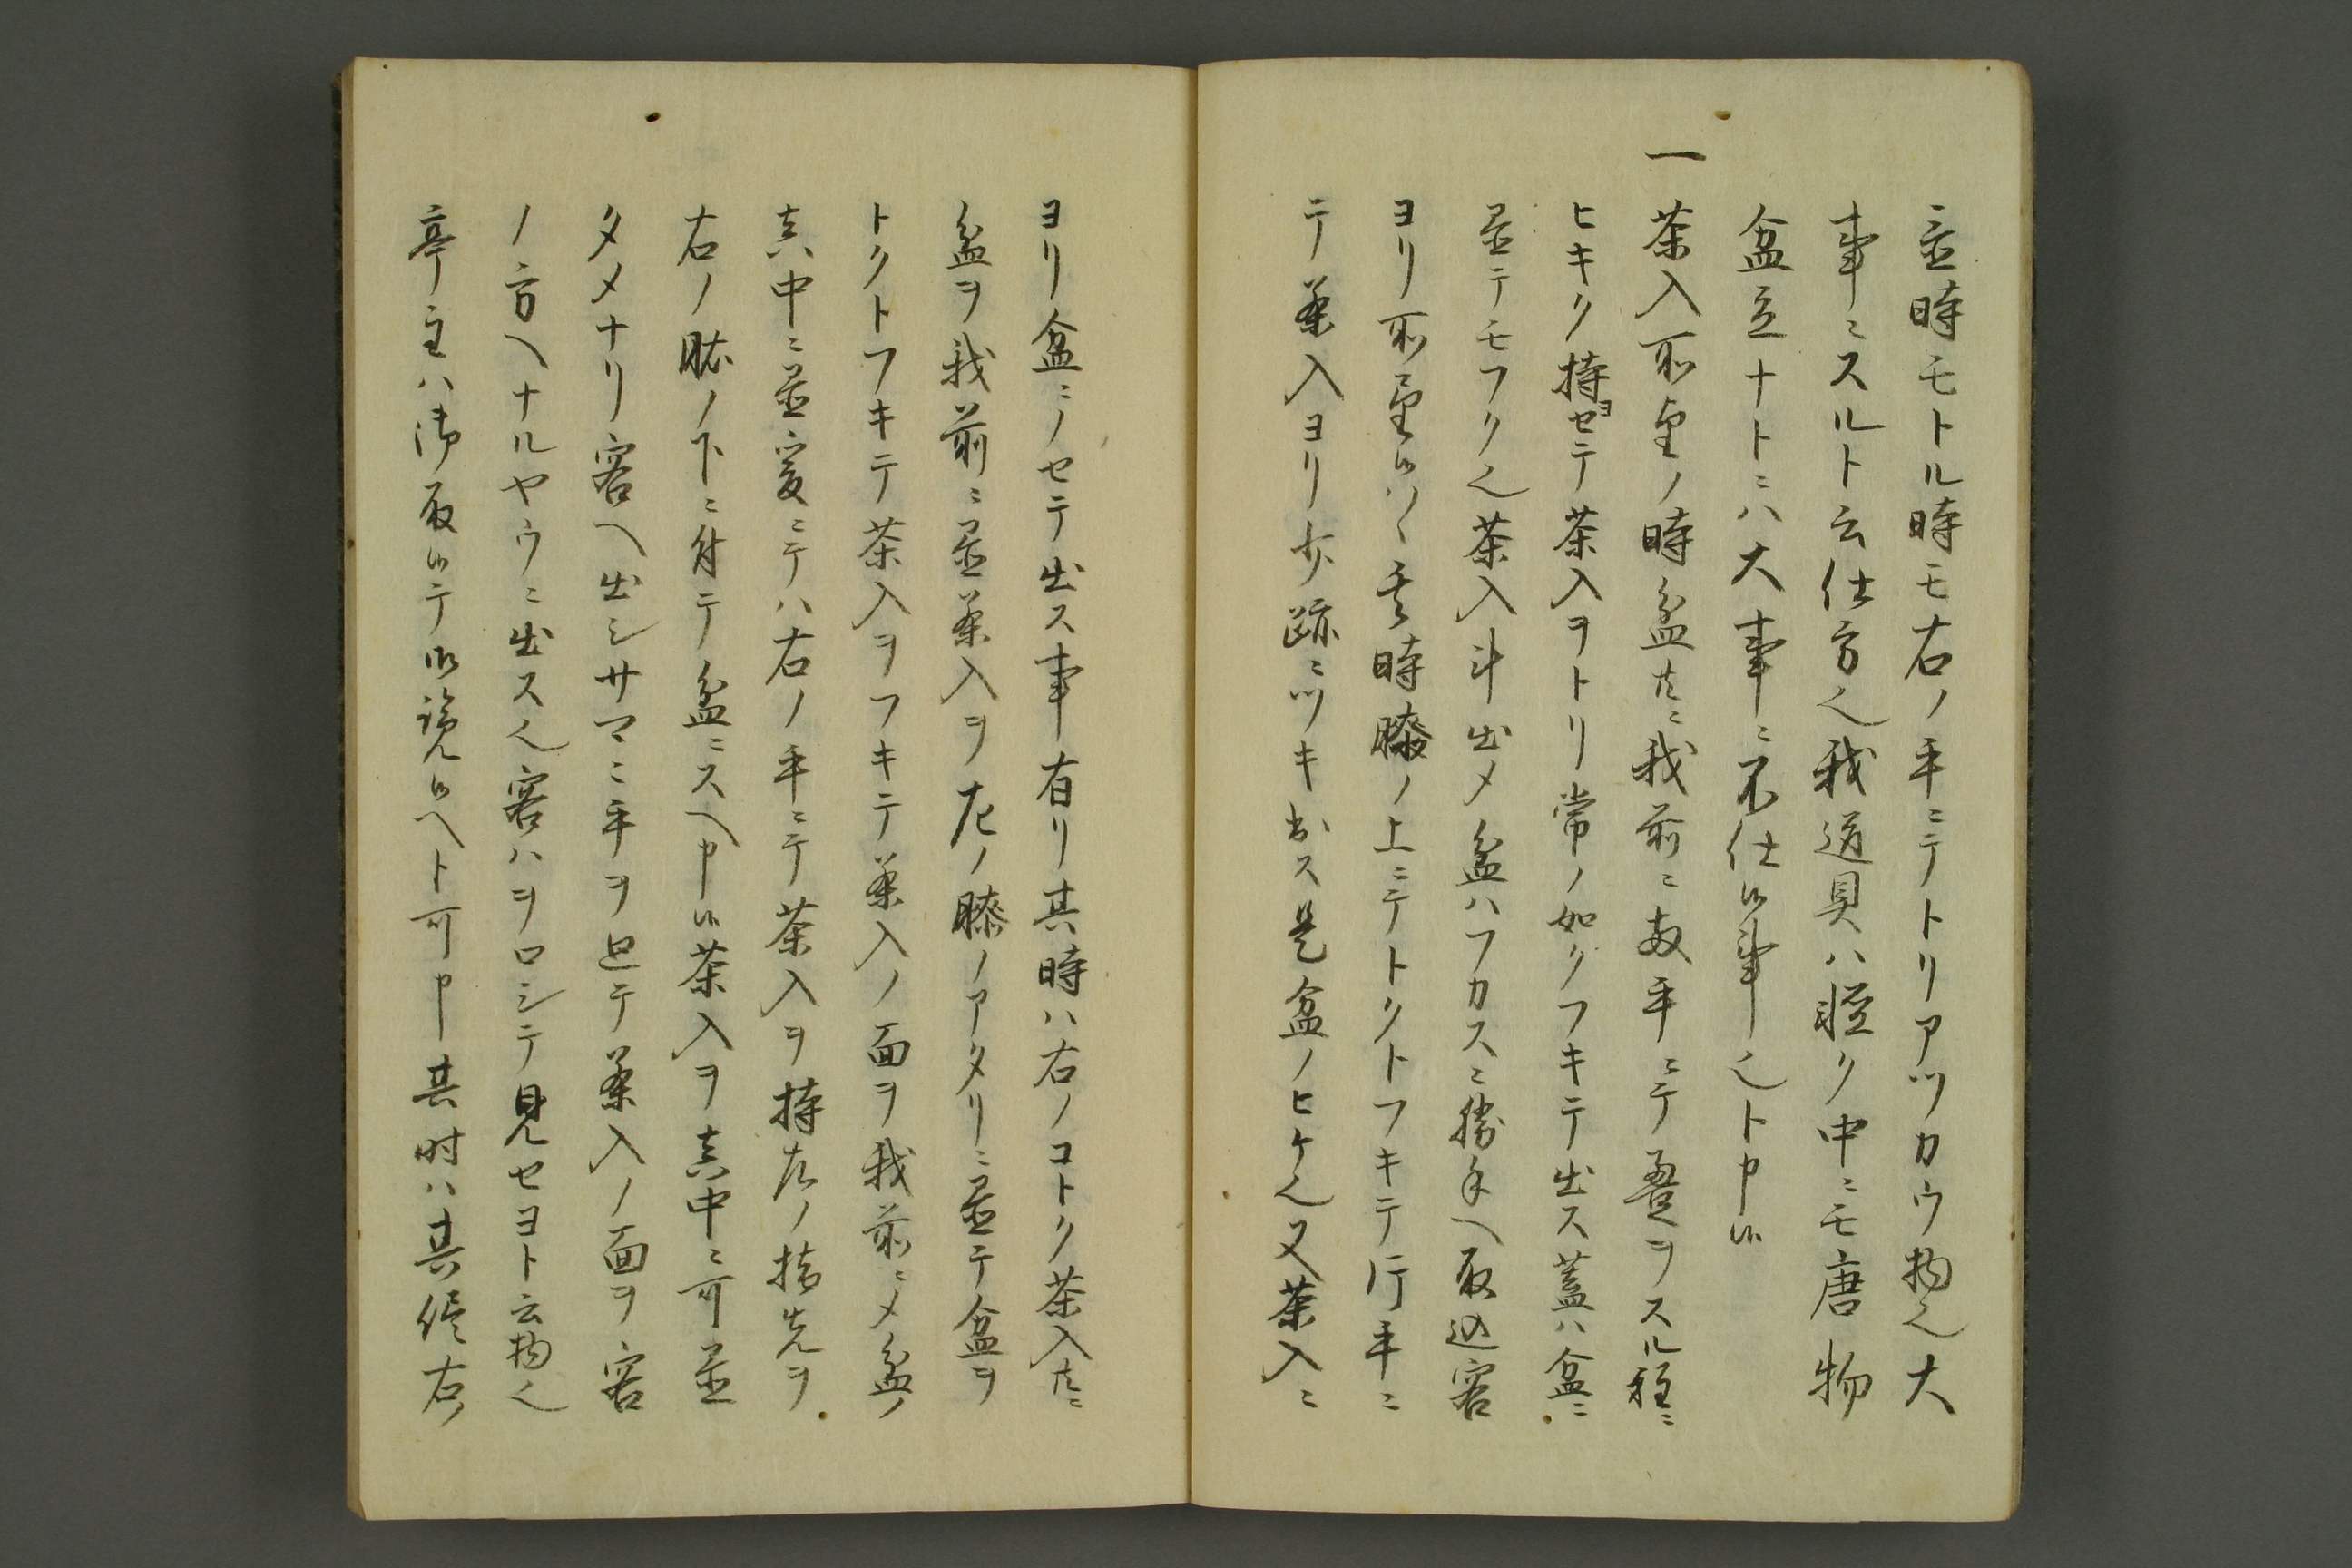 立時モトル時モ右ノ手ニテトリアツカウ物也大
事ニスルト云仕方也我道具ハ軽ク中ニモ唐物
盆立ナトニハ大事ニ不仕候事也ト申候
一茶入所望ノ時盆共ニ我前ニ両手ニテ置ヲスル程ニ
ヒキク持ヨセテ茶入ヲトリ常ノ如クフキテ出ス蓋ハ盆ニ
置テモフク也茶入計出メ盆ハフカスニ勝手ヘ取込客
ヨリ所望候ハヽ其時膝ノ上ニテトクトフキテ片手ニ
テ茶入ヨリ少跡ニツキ出ス是盆ノヒケ也又茶入ニ
ヨリ盆ニノセテ出ス事有リ其時ハ右ノコトク茶入共ニ
盆ヲ我前ニ置茶入ヲ左ノ膝ノアタリニ置テ盆ヲ
トクトフキテ茶入ヲフキテ茶入ノ面ヲ我前ニメ盆ノ
真中ニ置爰ニテハ右ノ手ニテ茶入ヲ持左ノ指先ヲ
右ノ脇ノ下ニ付テ盆ニスヘ申候茶入ヲ真中ニ可置
タメナリ客ヘ出シサマニ手ヲ廻テ茶入ノ面ヲ客
ノ方ヘナルヤウニ出ス也客ハヲロシテ見セヨト云物也
亭主ハ御取候テ御覧候ヘト可申其時ハ其侭右